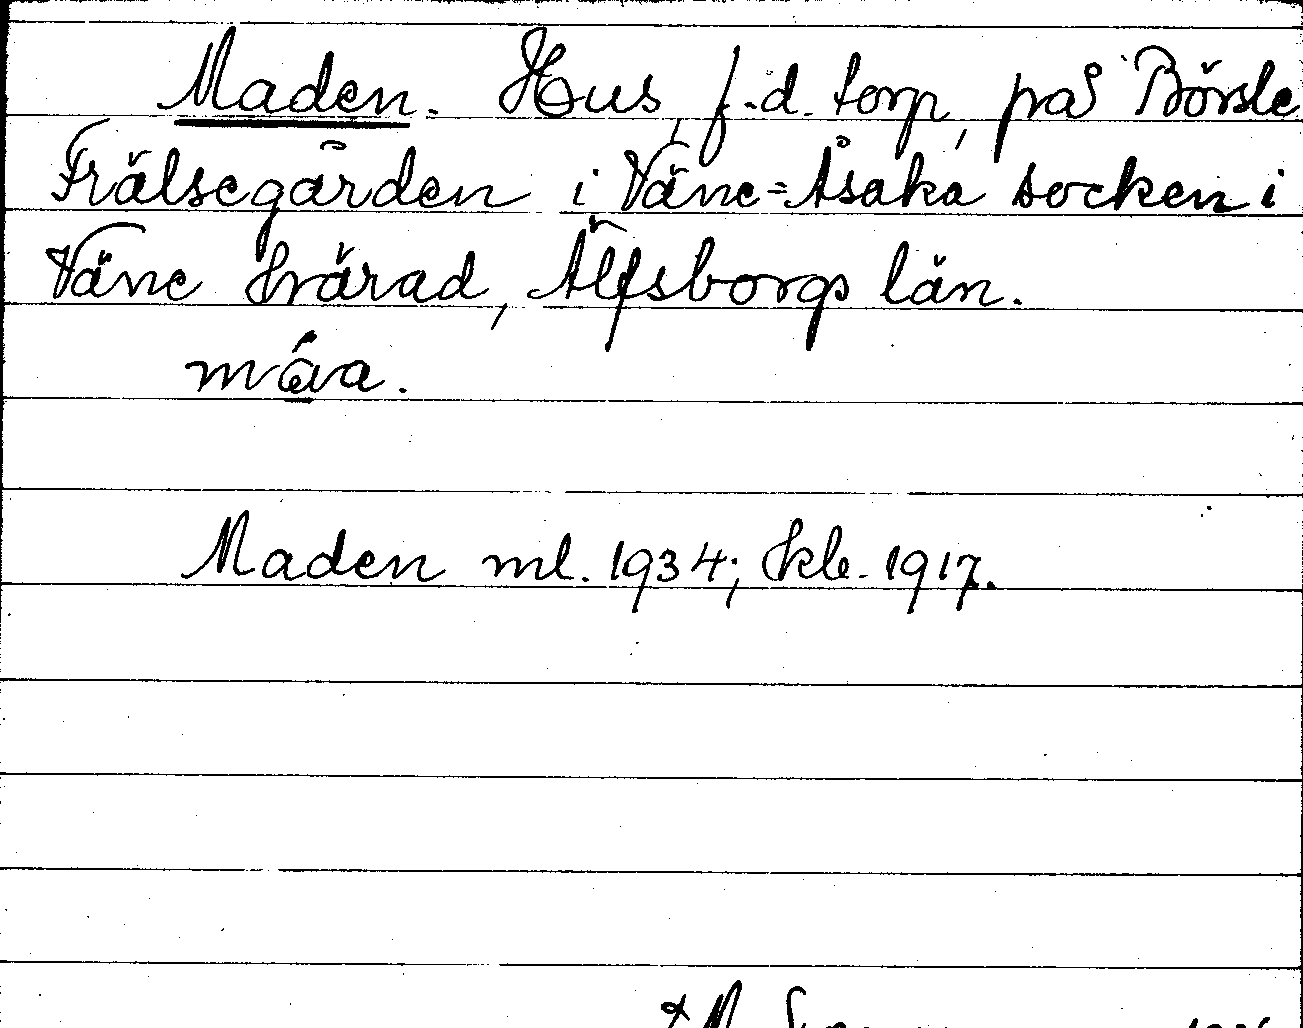 Maden. Hus, f.d. torp, på Börsle
Frälsegården i Väne-Åsaka socken i
Väne härad, Älfsborgs län.
máva.
Maden ml. 1934; Skb. 1917.